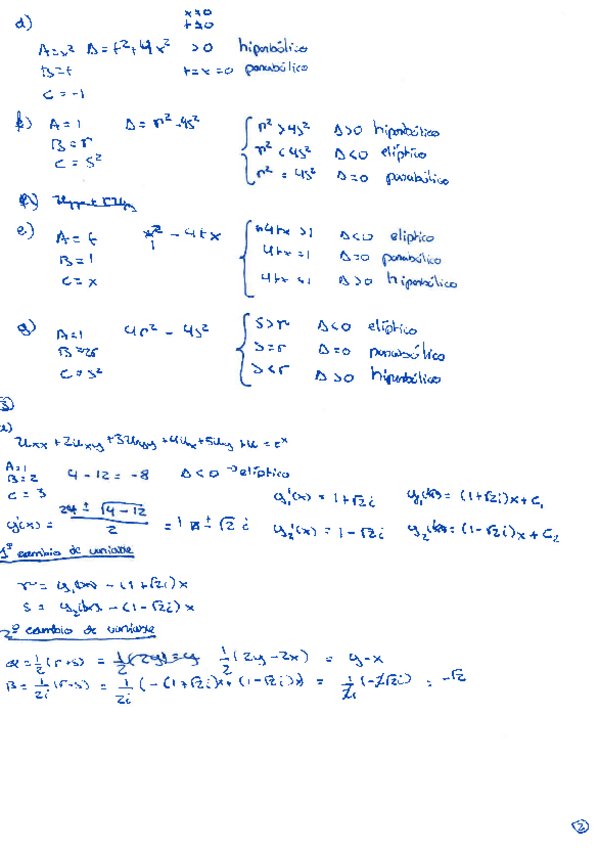 d) x≠0
t≠0
A=x² Δ=t²+4x² >0 hiperbólico
B=t t=x=0 parabólico
C=-1
f) A=1 Δ=r²-4s² { r²>4s² Δ>0 hiperbólico
B=r r²<4s² Δ<0 elíptico
C=s² r²=4s² Δ=0 parabólico
e) A=t 1-4tx { 4tx>1 Δ<0 elíptico
B=1 4tx=1 Δ=0 parabólico
C=x 4tx<1 Δ>0 hiperbólico
g) A=1 4r²-4s² { s>r Δ<0 elíptico
B=2r s=r Δ=0 parabólico
C=s² s<r Δ>0 hiperbólico
3)
a)
Uxx+2Uxy+3Uyy+4Ux+5Uy+U=e^x
A=1
B=2 4-12=-8 Δ<0 →elíptico
C=3
y₁'(x)=1+√2i y₁(x)=(1+√2i)x+C₁
y'(x)= 2±√4-12 / 2 =1±√2i y₂'(x)=1-√2i y₂(x)=(1-√2i)x+C₂
1º cambio de variable
r= y -(1+√2i)x
s= y -(1-√2i)x
2º cambio de variable
α=½(r+s)= ½(2y-2x) = y-x
B=1/2i(r-s)= 1/2i(-(1+√2i)x+(1-√2i)x) = 1/2i(-2√2i) = -√2
2